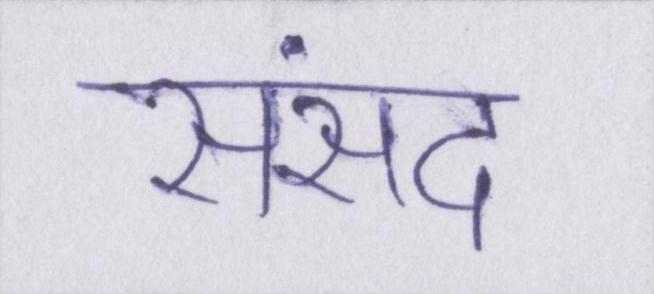 संसद